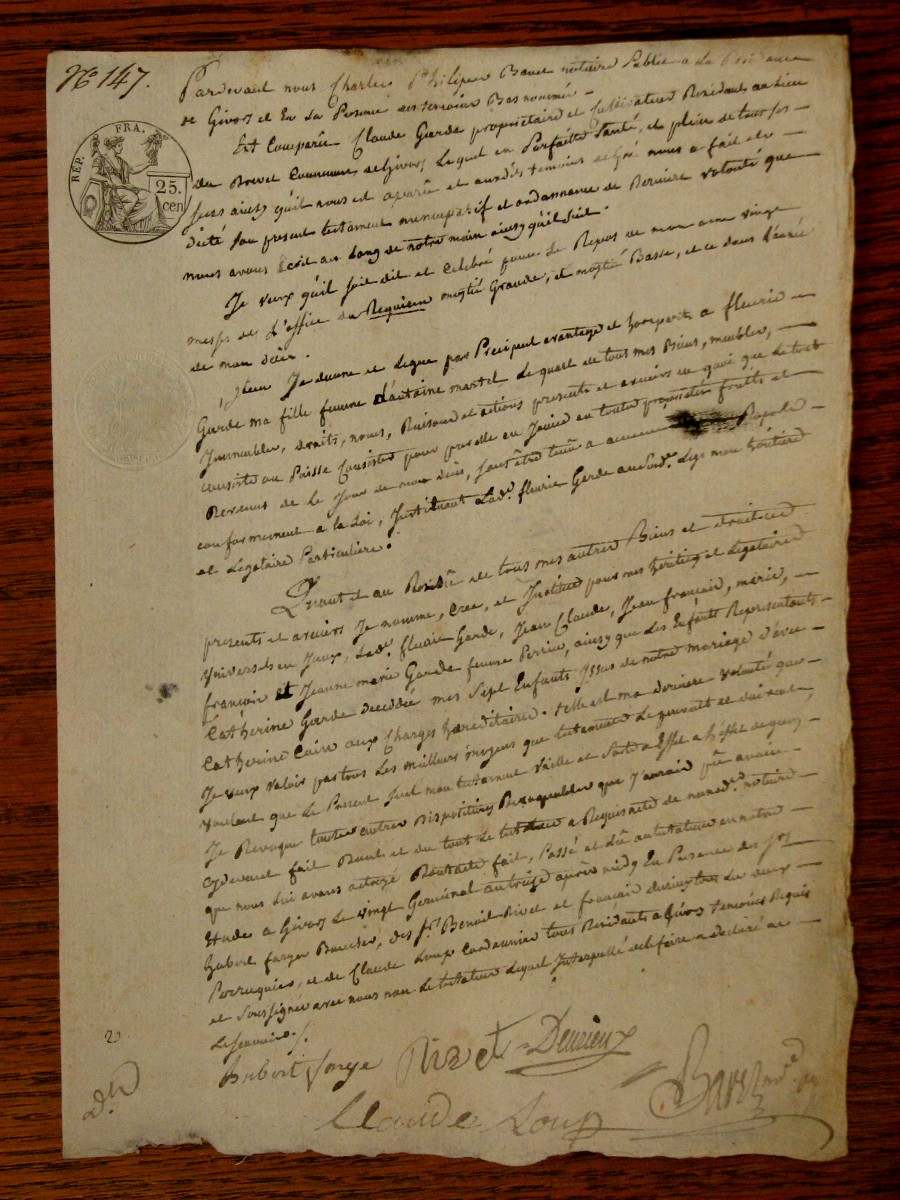 No 147.
RÉP. FRA.
25. cen
Pardevant nous Charles Philipeu Bavet notaire Public a La Residance
de Givors et En La Presence des temoins Bas nommés
Est Comparu Claude Garde propriétaire et Cultivateur Residant au lieu
du Brevet Commune de Givors Lequel en Parfaitte Santé, et plein de tous ses
sens ainsy qu'il nous est aparû et auxdits temoins de Gré nous a fait et
dicté Son présent testament nuncupatif et ordonnance de Derniere volonté que
nous avons Ecrit au long de notre main ainsy qu'il suit.
Je veux qu'il soit dit et Celebré pour le Repos de mon ame vingt
messes de L'office du Requiem moytié Grande, et moytié Basse, et ce dans L'année
de mon decès.
Item Je donne et Legue par Preciput avantage et horspart, a fleurie
Garde ma fille femme d'antoine martel Le quart de tous mes Biens, meubles,
Immeubles, droits, noms, Raisons et actions presents et avenirs en quoi que le tout
consiste ou Puisse Consister pour par elle en Jouir en toute proprieté fruits et
Revenus de Le Jour de mon decès, sans être tenue a aucun Raport
conformement a la Loi, Instituant Lade. fleurie Garde audit Legs mon héritiere
et Légataire Particuliere.
Quant et au Residû de tous mes autres Biens et droits
presents et avenirs Je nomme, Crée, et Institue pour mes héritiers et Legataires
Universels en Jceux, Lade. fleurie Garde, Jean Claude, Jean françois, marie,
françois et Jeanne marie Garde femme Perrin, ainsy que Les Enfants Representants
Catherine Garde decedée mes Sept Enfants Issus de notre mariage d'avec
Catherine aux Charges héréditaires. telle est ma derniere volonté que
Je veux valoir par tous Les meilleurs moyens que testament Le peuvent et doivent
voulant que Le Present Seul mon testament vaille et Sorte a Effet a l'effet de quoy
Je Revoque toutes autres Dispositions Revoquables que J'aurais pû avoir
cydevant fait Dont et du tout Le testateur a Requis acte de nous dt notaire
que nous Lui avons octroyé fait, Passé et Lû au testateur en notre
Etude a Givors Le vingt Germinal an treize après midy En Presence des Srs
hubert farge Boucher, des Srs Benoit Rivet et françois Le vieux
Perruquier, et de Claude Loup Cordonnier tous Residants a Givors temoins Requis
et Soussignés avec nous non Le testateur Lequel Interpellé de le faire a Declaré ne
Le Scavoir.
hubert farge Rivet Devieux
Claude Loup Bavet
2